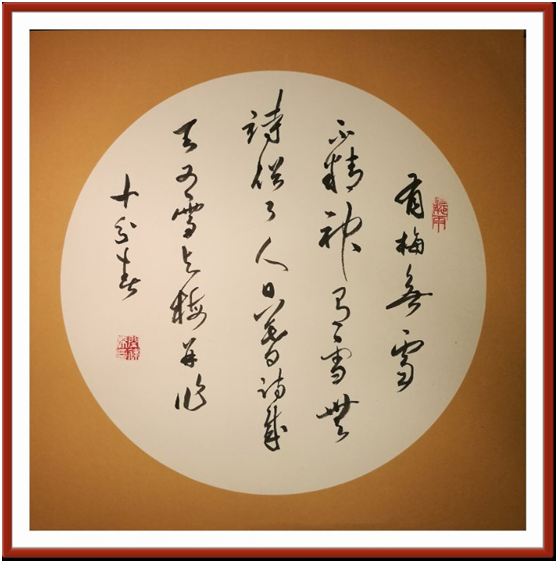 有梅無雪
不精神有雪無
詩俗了人日暮詩成
天又雪与梅并作
十分春